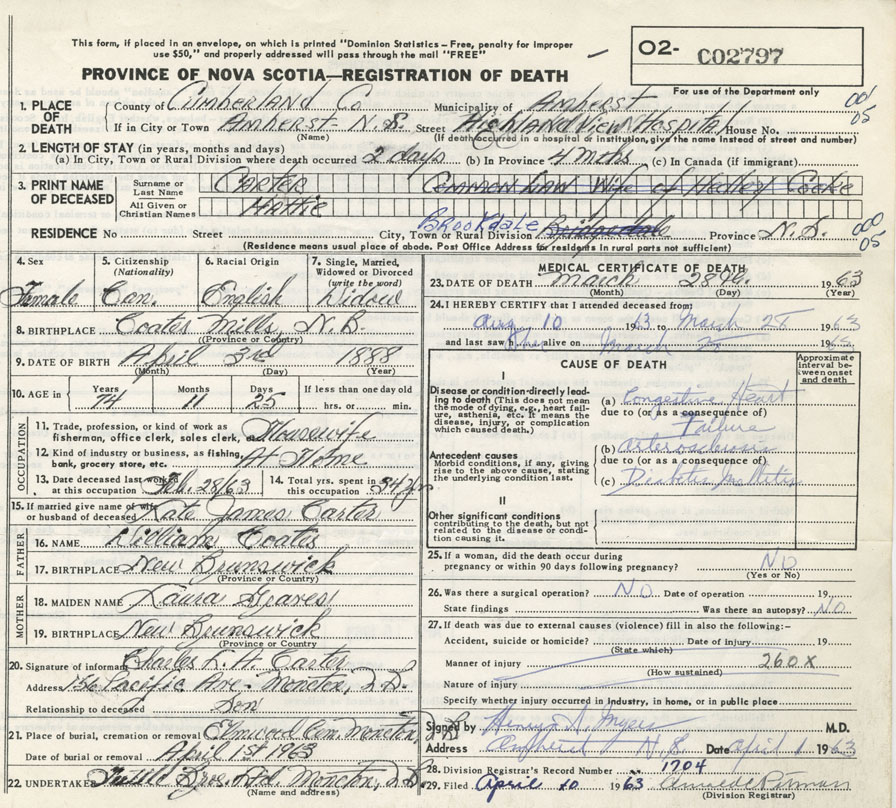 This form, if placed in an envelope, on which is printed "Dominion Statistics - Free, penalty for improper
use $50," and properly addressed will pass through the mail "FREE"
O2- C02797
For use of the Department only
PROVINCE OF NOVA SCOTIA—REGISTRATION OF DEATH
1. PLACE OF DEATH County of Cumberland Co. Municipality of Amherst 001 05
If in City or Town Amherst N.S. Street Highland View Hospital House No.
(Name) (If death occurred in a hospital or institution, give the name instead of street and number)
2. LENGTH OF STAY (in years, months and days)
(a) In City, Town or Rural Division where death occurred 2 days (b) In Province 4 mths (c) In Canada (if immigrant)
3. PRINT NAME OF DECEASED Surname or Last Name CARTER Common Law Wife of Hedley Cooke
All Given or Christian Names Hattie
RESIDENCE No Street City, Town or Rural Division Brookdale Province N.S. 000 05
(Residence means usual place of abode. Post Office Address for residents in rural parts not sufficient)
4. Sex Female
5. Citizenship (Nationality) Can.
6. Racial Origin English
7. Single, Married, Widowed or Divorced (write the word) Widow
8. BIRTHPLACE Coates Mills, N.B.
(Province or Country)
9. DATE OF BIRTH April 3rd 1888
(Month) (Day) (Year)
10. AGE in Years 74 Months 11 Days 25 If less than one day old hrs. or min.
OCCUPATION
11. Trade, profession, or kind of work as fisherman, office clerk, sales clerk, Housewife
12. Kind of industry or business, as fishing, bank, grocery store, etc. At Home
13. Date deceased last worked at this occupation Feb. 28/63 14. Total yrs. spent in this occupation 54 yrs
15. If married give name of wife or husband of deceased Late James Carter
FATHER
16. NAME William Coates
17. BIRTHPLACE New Brunswick
(Province or Country)
MOTHER
18. MAIDEN NAME Laura Graves
19. BIRTHPLACE New Brunswick
(Province or Country)
20. Signature of informant Charles K. H. Carter
Address 156 Pacific Ave. Moncton, N.B.
Relationship to deceased Son
21. Place of burial, cremation or removal Elmwood Cem Moncton, N.B.
Date of burial or removal April 1st 1963
22. UNDERTAKER Bros. Ltd. Moncton, N.B.
(Name and address)
MEDICAL CERTIFICATE OF DEATH
23. DATE OF DEATH March 28th. 1963
(Month) (Day) (Year)
24. I HEREBY CERTIFY that I attended deceased from:
Aug 10 1963 to March 28 1963
and last saw her alive on March 19
CAUSE OF DEATH
Approximate interval between onset and death
I
Disease or condition directly leading to death (This does not mean the mode of dying, e.g., heart failure, asthenia, etc. It means the disease, injury, or complication which caused death.)
(a) Congestive Heart Failure
due to (or as a consequence of)
Antecedent causes
Morbid conditions, if any, giving rise to the above cause, stating the underlying condition last.
(b)
due to (or as a consequence of)
(c) Diabetes Mellitus
II
Other significant conditions
contributing to the death, but not related to the disease or condition causing it.
25. If a woman, did the death occur during
pregnancy or within 90 days following pregnancy? NO
(Yes or No)
26. Was there a surgical operation? NO Date of operation 19
State findings Was there an autopsy? NO
27. If death was due to external causes (violence) fill in also the following:-
Accident, suicide or homicide? Date of injury 19
(State which)
Manner of injury 260X
(How sustained)
Nature of injury
Specify whether injury occurred in Industry, in home, or in public place
Signed by Henry S. Myers M.D.
Address Amherst N.S. Date April 1 1963
28. Division Registrar's Record Number 1704
29. Filed April 10 1963
(Division Registrar)